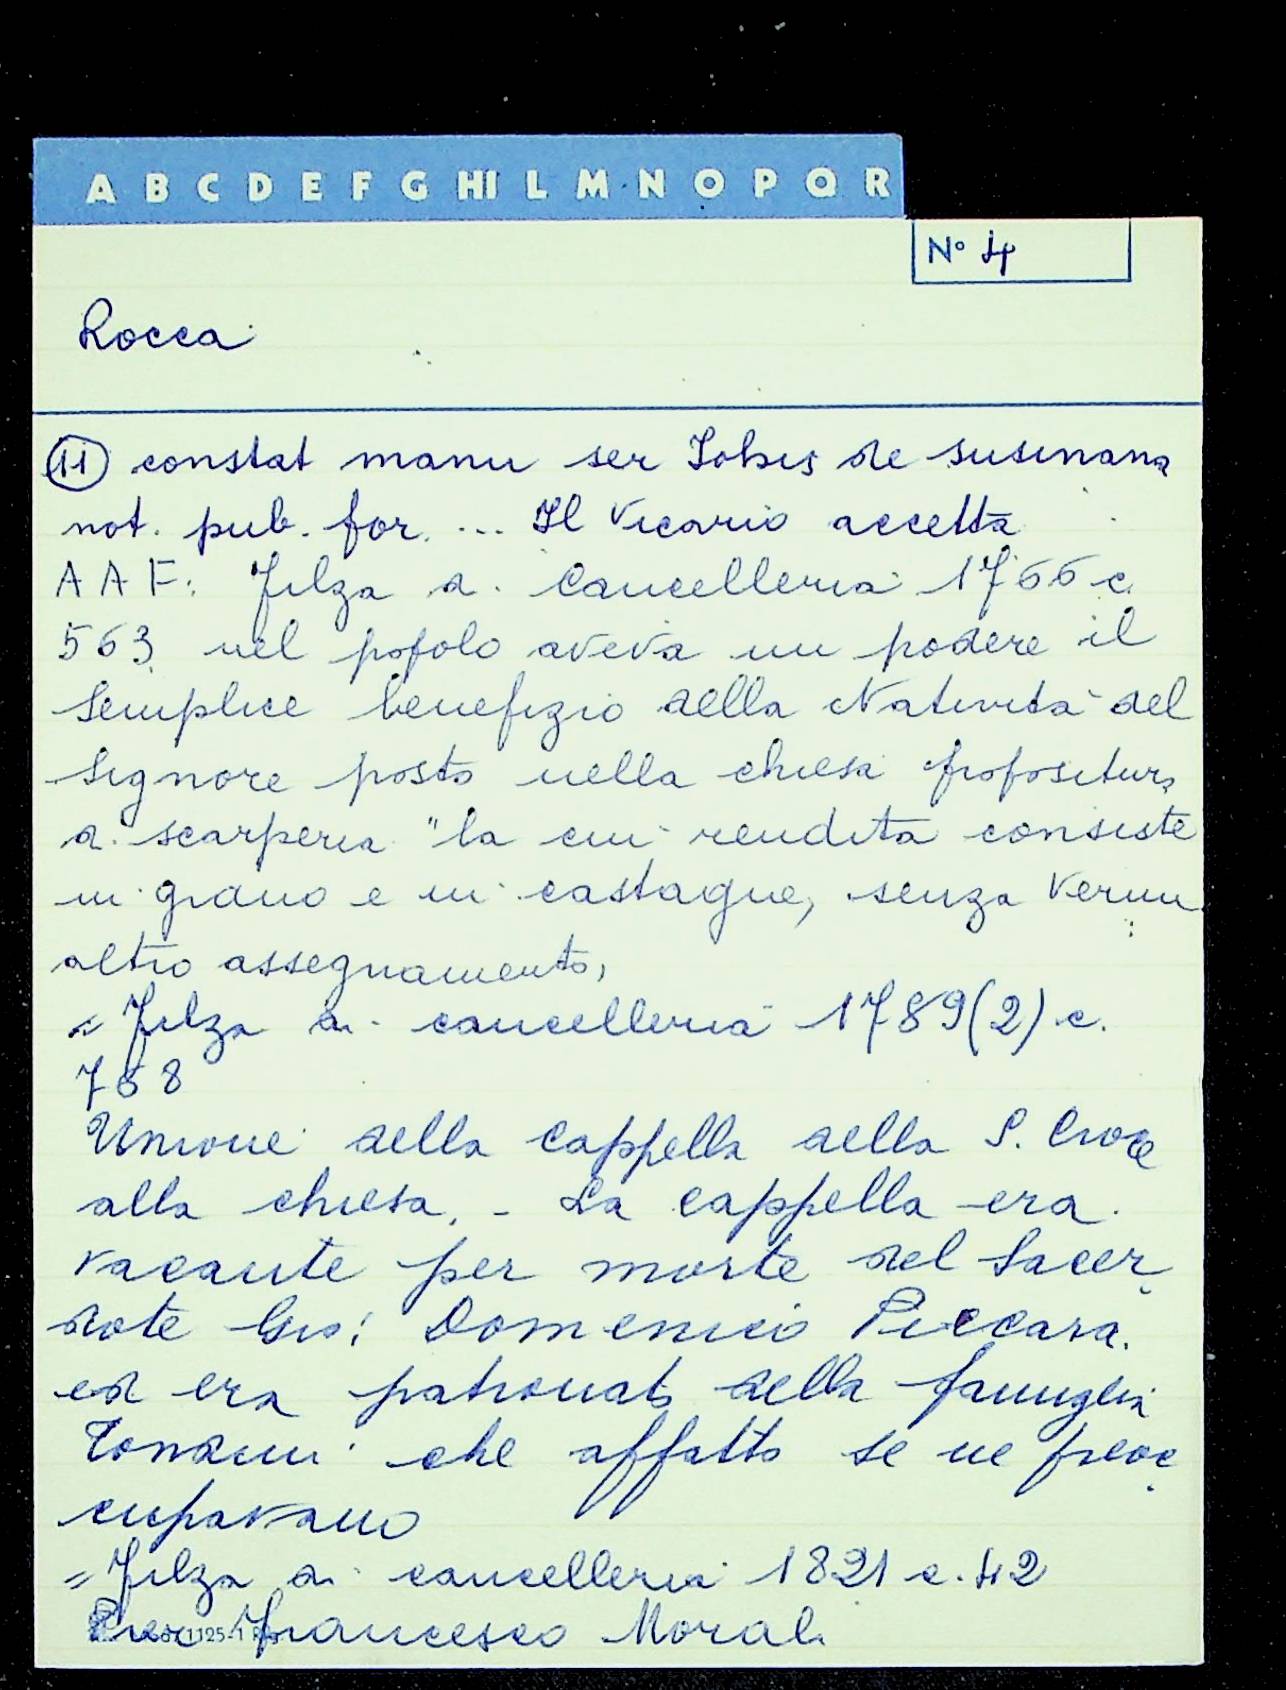 A B C D E F G HI L M N O P Q R
N° 4
Rocca
11 constat manu ser Iohis de Susinana
not. pub. for. ... Il Vicario accetta
A A F: Filza di Cancelleria 1766 c.
563 nel popolo aveva un podere il
semplice benefizio della Natività del
Signore posto nella chiesa propositura
di Scarperia "la cui rendita consiste
in grano e in castagne, senza verun
altro assegnamento,
= Filza di cancelleria 1789(2) c.
788
Unione della Cappella della S. Croce
alla chiesa. - La cappella era
vacante per morte del Sacer
dote Gio: Domenico Piccara.
ed era patronato della famiglia
che affatto se ne preoc
cupavano
= Filza di cancelleria 1821 c. 42
Pier Francesco Morali